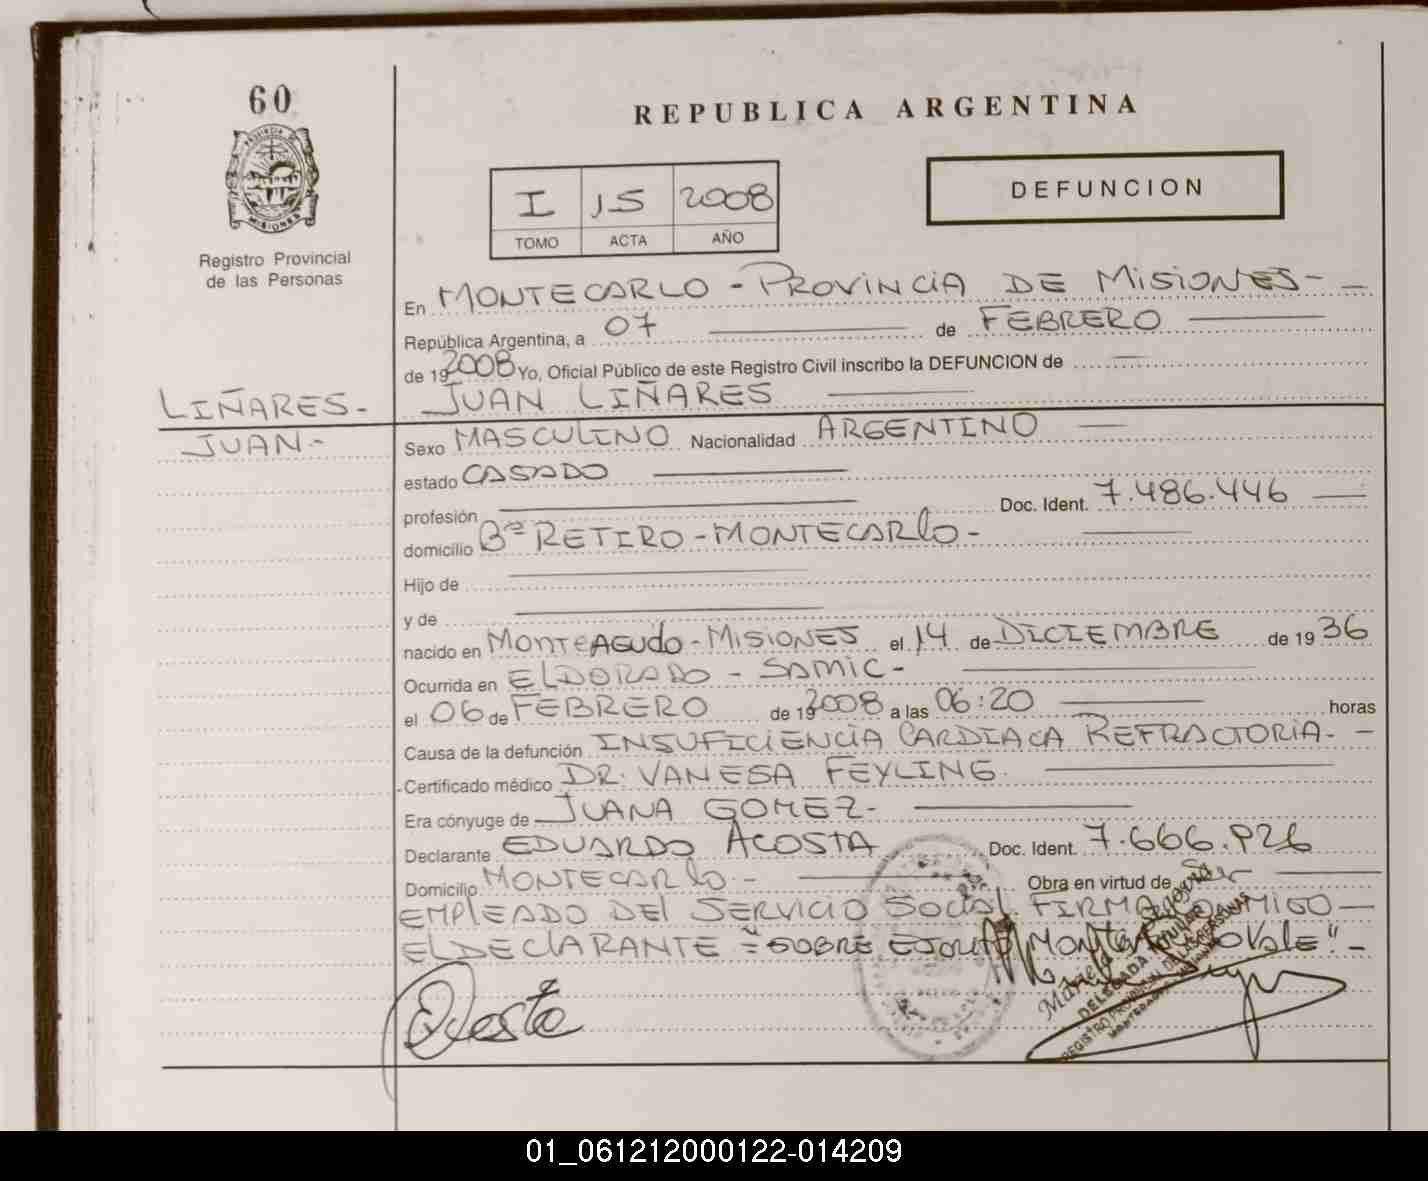 60
REPUBLICA ARGENTINA
PROVINCIA DE
MISIONES
I 15 2008
TOMO ACTA AÑO
DEFUNCION
Registro Provincial
de las Personas
En MONTECARLO - PROVINCIA DE MISIONES - —
República Argentina, a 07 de FEBRERO
de 19 2008 Yo, Oficial Público de este Registro Civil inscribo la DEFUNCION de
LIÑARES - JUAN LIÑARES
JUAN - Sexo MASCULINO Nacionalidad ARGENTINO
estado CASADO
profesión Doc. Ident. 7.486.446
domicilio Bº RETIRO - MONTECARLO -
Hijo de
y de
nacido en MONTEAGUDO - MISIONES el 14 de DICIEMBRE de 19 36
Ocurrida en ELDORADO - SAMIC -
el 06 de FEBRERO de 19 2008 a las 06:20 horas
Causa de la defunción INSUFICIENCIA CARDIACA REFRACTORIA - -
Certificado médico DR. VANESA FEYLING.
Era cónyuge de JUANA GOMEZ -
Declarante EDUARDO ACOSTA Doc. Ident. 7.666.926
Domicilio MONTECARLO - Obra en virtud de
EMPLEADO DEL SERVICIO SOCIAL FIRMA CONMIGO
EL DECLARANTE = "SOBRE ESCRITO VALE" -
Acosta
DELEGADA
REGISTRO PROVINCIAL DE LAS PERSONAS
01_061212000122-014209